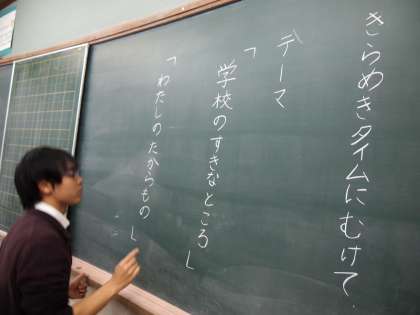 きらめきタイムにむけて
テーマ
「学校のすきなところ」
「わたしのたからもの」